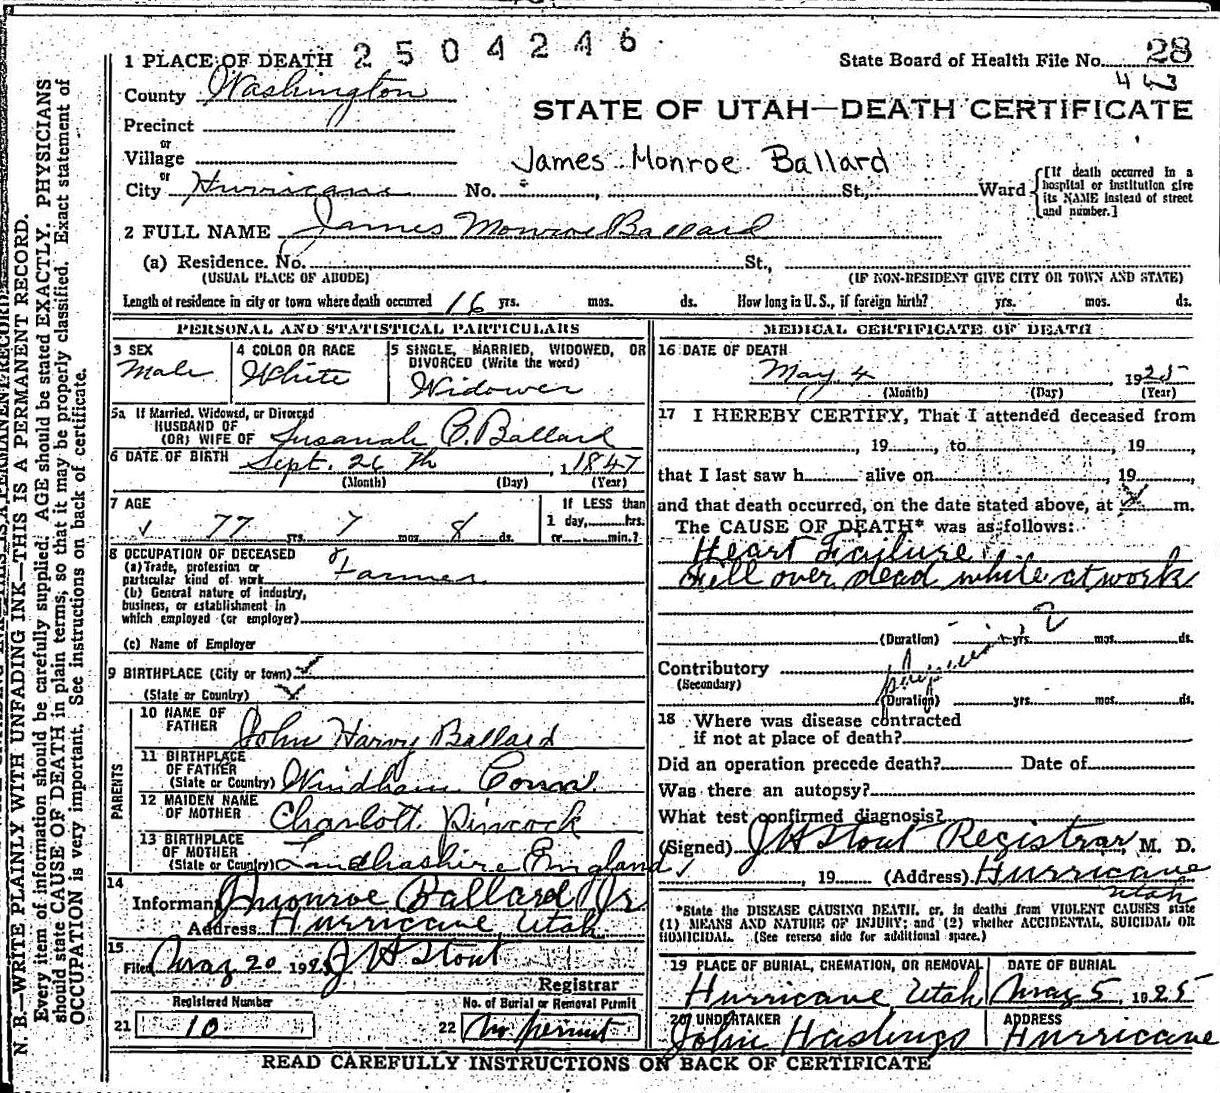 1 PLACE OF DEATH 2504246
State Board of Health File No. 28
County Washington
443
STATE OF UTAH—DEATH CERTIFICATE
Precinct
or
Village
James Monroe Ballard
or
City Hurricane No. , St., Ward
[If death occurred in a hospital or institution give its NAME instead of street and number.]
2 FULL NAME James Monroe Ballard
(a) Residence. No. St.,
(USUAL PLACE OF ABODE) (IF NON-RESIDENT GIVE CITY OR TOWN AND STATE)
Length of residence in city or town where death occurred 16 yrs. mos. ds. How long in U.S., if foreign birth? yrs. mos. ds.
PERSONAL AND STATISTICAL PARTICULARS
3 SEX
Male
4 COLOR OR RACE
White
5 SINGLE, MARRIED, WIDOWED, OR DIVORCED (Write the word)
Widower
5a If Married, Widowed, or Divorced
HUSBAND OF
(OR) WIFE OF Susanah C. Ballard
6 DATE OF BIRTH Sept. 26th, 1 1847
(Month) (Day) (Year)
7 AGE
77 yrs. 7 mos. 8 ds.
If LESS than
1 day, hrs.
or min.?
8 OCCUPATION OF DECEASED
(a) Trade, profession or
particular kind of work Farmer
(b) General nature of industry,
business, or establishment in
which employed (or employer)
(c) Name of Employer
9 BIRTHPLACE (City or town)
(State or Country)
PARENTS
10 NAME OF
FATHER John Harvy Ballard
11 BIRTHPLACE
OF FATHER
(State or Country) Windham Conn
12 MAIDEN NAME
OF MOTHER Charlott Pincock
13 BIRTHPLACE
OF MOTHER
(State or Country) Landkashire England
14
Informant J Monroe Ballard Jr
Address Hurricane, Utah
15
Filed May 20 1925 J H Stout
Registrar
Registered Number
21 10
No. of Burial or Removal Permit
22 No permit
MEDICAL CERTIFICATE OF DEATH
16 DATE OF DEATH
May 4, 1925
(Month) (Day) (Year)
17 I HEREBY CERTIFY, That I attended deceased from
, 19 , to , 19 ,
that I last saw h alive on , 19 ,
and that death occurred, on the date stated above, at m.
The CAUSE OF DEATH* was as follows:
Heart Failure
Fell over dead while at work
(Duration) yrs. mos. ds.
Contributory
(Secondary)
(Duration) yrs. mos. ds.
18 Where was disease contracted
if not at place of death?
Did an operation precede death? Date of
Was there an autopsy?
What test confirmed diagnosis?
(Signed) J H Stout Registrar, M. D.
, 19 (Address) Hurricane
Utah
*State the DISEASE CAUSING DEATH, or, in deaths from VIOLENT CAUSES state
(1) MEANS AND NATURE OF INJURY; and (2) whether ACCIDENTAL, SUICIDAL OR
HOMICIDAL. (See reverse side for additional space.)
19 PLACE OF BURIAL, CREMATION, OR REMOVAL
Hurricane Utah
DATE OF BURIAL
May 5, 1925
20 UNDERTAKER
John Hastings
ADDRESS
Hurricane
READ CAREFULLY INSTRUCTIONS ON BACK OF CERTIFICATE
N. B.—WRITE PLAINLY WITH UNFADING INK—THIS IS A PERMANENT RECORD.
Every item of information should be carefully supplied. AGE should be stated EXACTLY. PHYSICIANS
should state CAUSE OF DEATH in plain terms, so that it may be properly classified. Exact statement of
OCCUPATION is very important. See instructions on back of certificate.